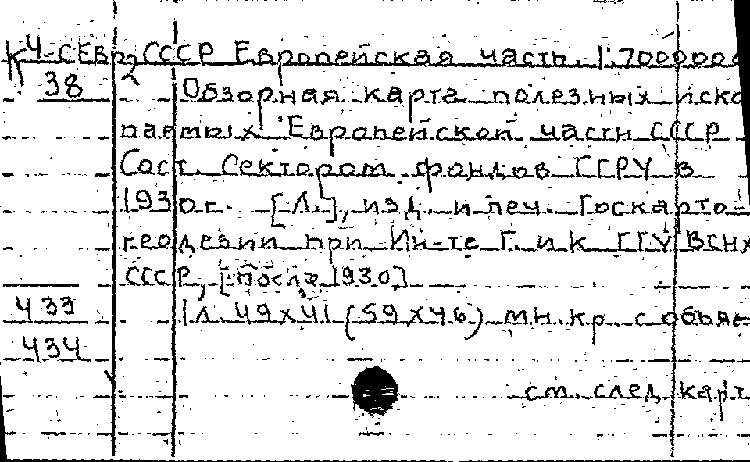 К4-СЕвр2 СССР Европейская часть. 1:7000000
38 Обзорная карта полезных иско-
паемых Европейской части СССР
Сост. Сектором фондов ГГРУ в
1930г. [Л.], изд. и печ. Госкарто-
геодезии при Ин-те Г. и К ГГУ ВСНХ
СССР, [после 1930]
433 1л. 49х41 (59х46) мн.кр. с объян
434
см. след. карт